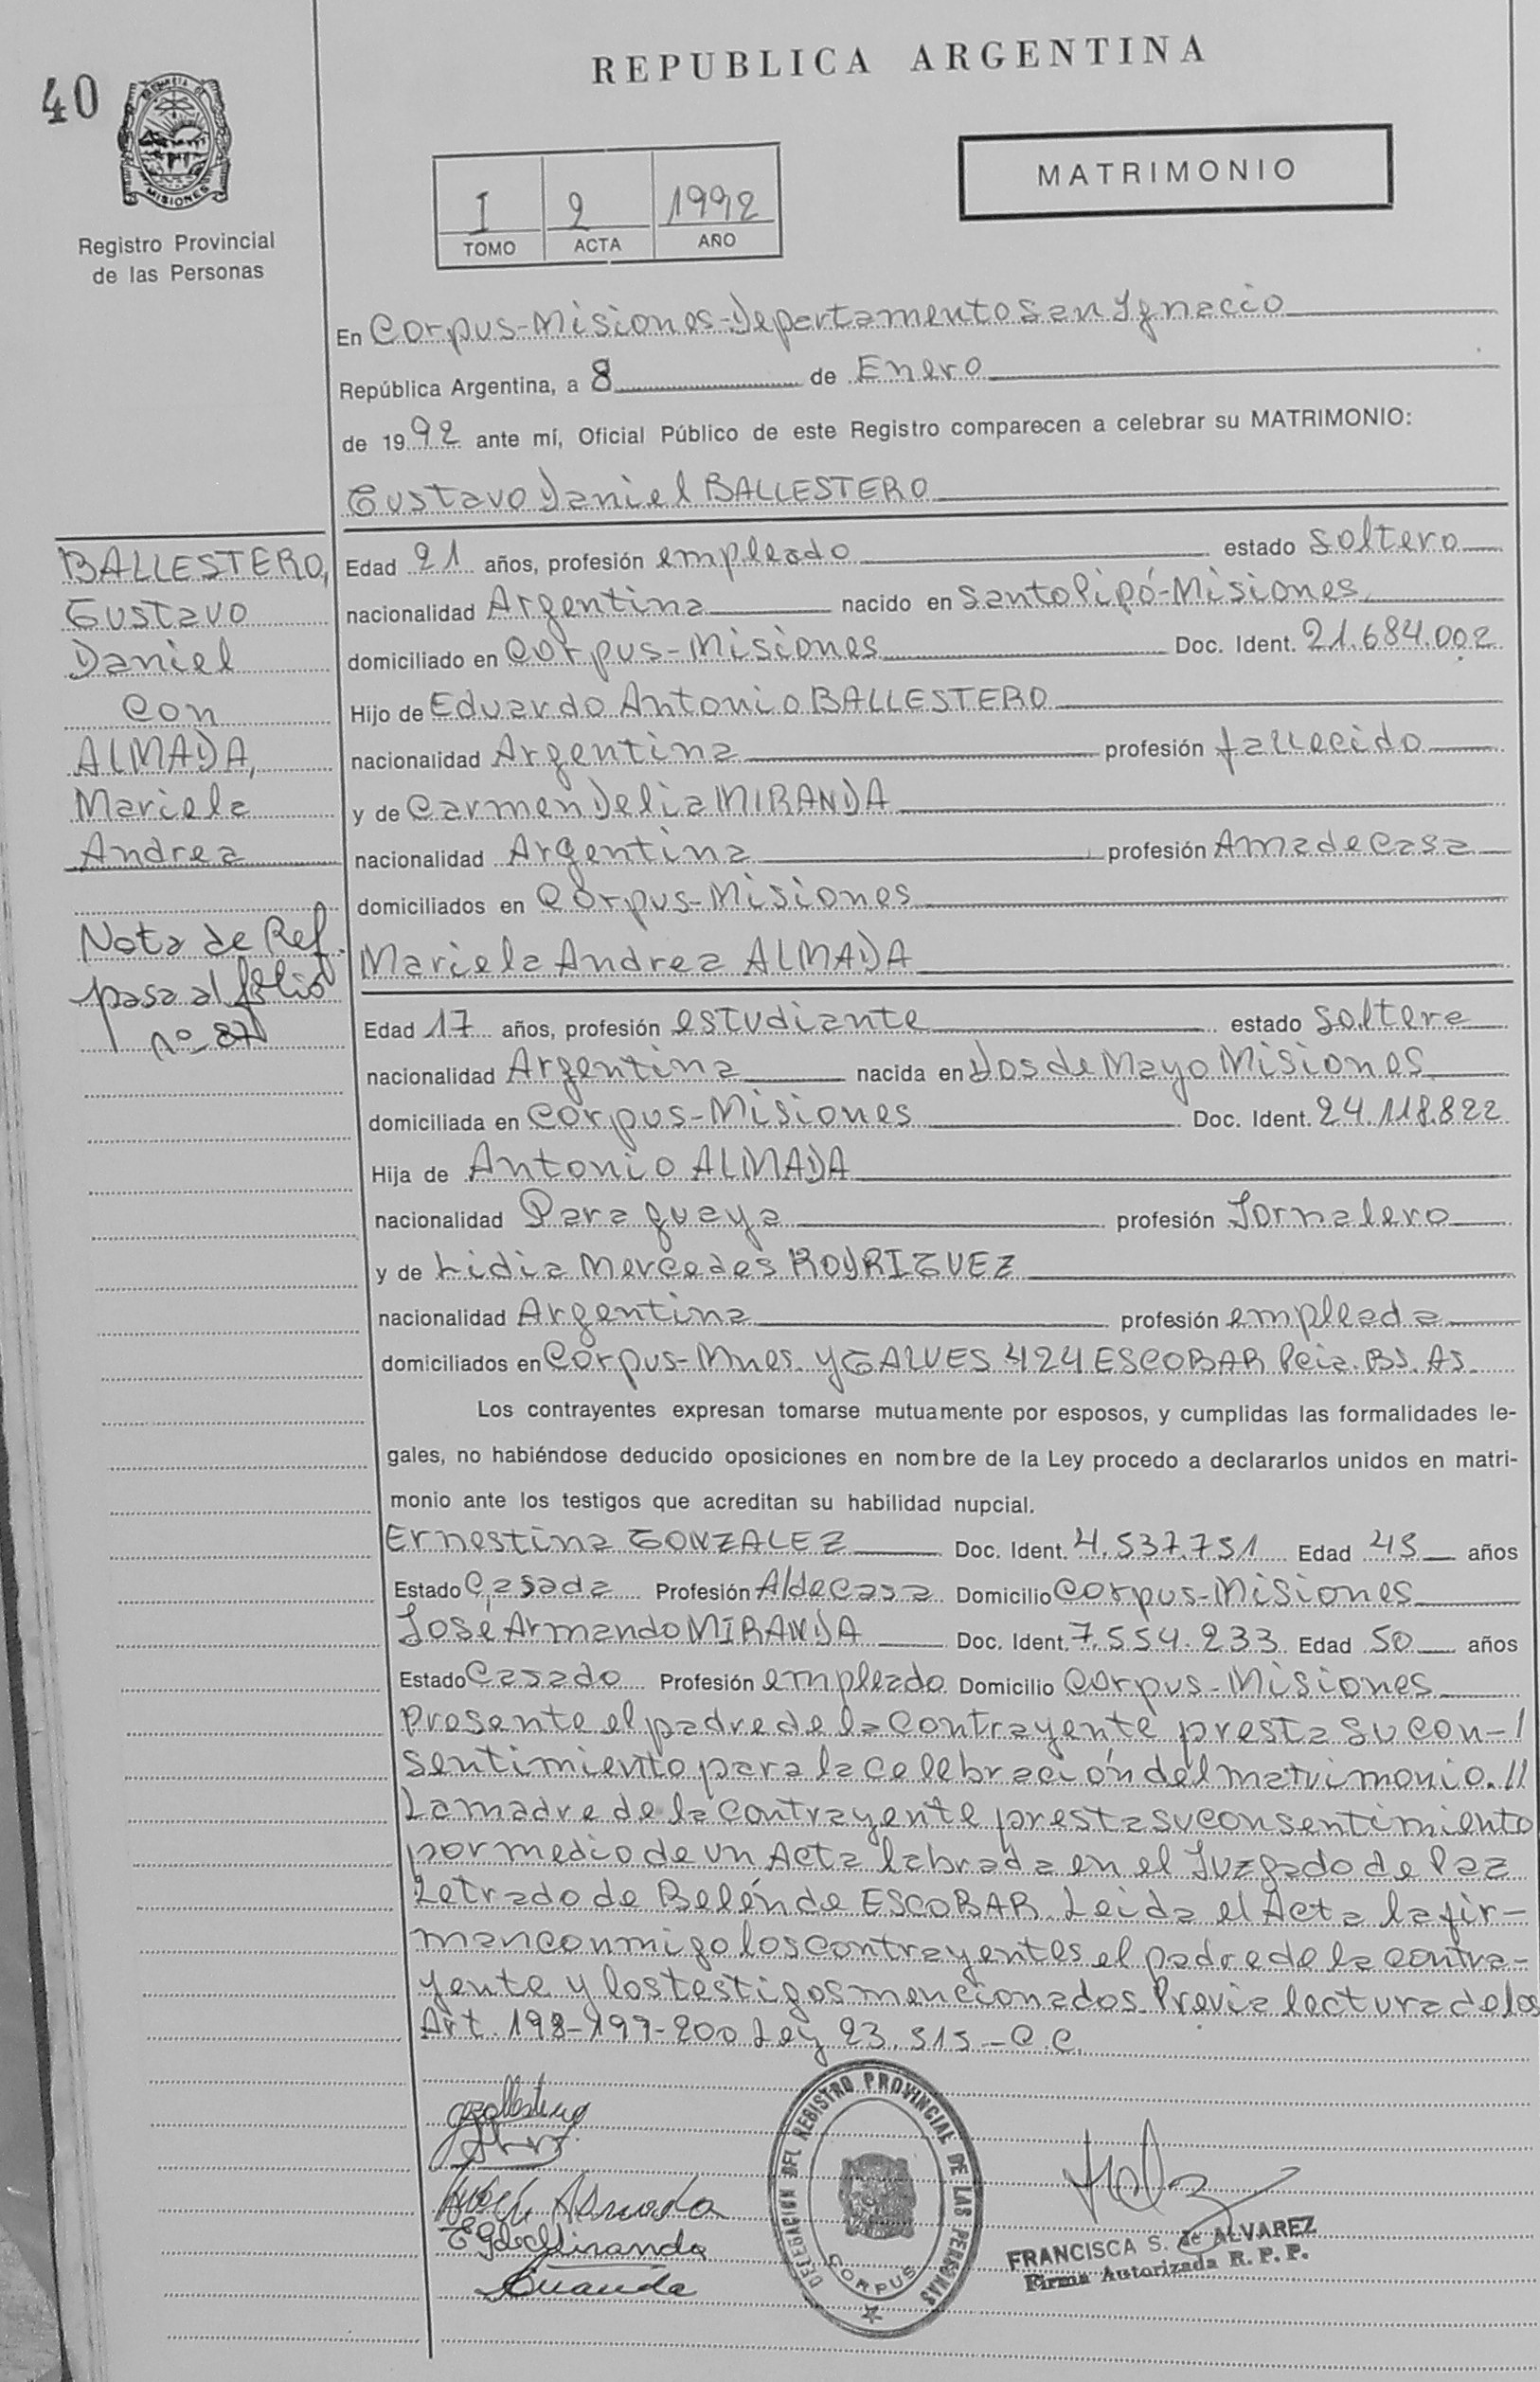 40
REPUBLICA ARGENTINA
MISIONES
Registro Provincial
de las Personas
I 2 1992
TOMO ACTA AÑO
MATRIMONIO
En Corpus-Misiones-Departamento San Ignacio
República Argentina, a 8 de Enero
de 1992 ante mí, Oficial Público de este Registro comparecen a celebrar su MATRIMONIO:
Gustavo Daniel BALLESTERO
BALLESTERO,
Gustavo
Daniel
con
ALMADA,
Mariela
Andrea
Nota de Ref.
pasa al folio
nº 87
Edad 21 años, profesión empleado estado soltero
nacionalidad Argentina nacido en Santo Pipó-Misiones
domiciliado en Corpus-Misiones Doc. Ident. 21.684.002
Hijo de Eduardo Antonio BALLESTERO
nacionalidad Argentina profesión fallecido
y de Carmen Delia MIRANDA
nacionalidad Argentina profesión Ama de Casa
domiciliados en Corpus-Misiones
Mariela Andrea ALMADA
Edad 17 años, profesión estudiante estado soltera
nacionalidad Argentina nacida en Dos de Mayo Misiones
domiciliada en Corpus-Misiones Doc. Ident. 24.118.822
Hija de Antonio ALMADA
nacionalidad Paraguaya profesión Jornalero
y de Lidia Mercedes RODRIGUEZ
nacionalidad Argentina profesión empleada
domiciliados en Corpus-Mnes. y GALVES 424 ESCOBAR Pcia. Bs. As.
Los contrayentes expresan tomarse mutuamente por esposos, y cumplidas las formalidades le-
gales, no habiéndose deducido oposiciones en nombre de la Ley procedo a declararlos unidos en matri-
monio ante los testigos que acreditan su habilidad nupcial.
Ernestina GONZALEZ Doc. Ident. 4.537.751 Edad 45 años
Estado Casada Profesión A/de Casa Domicilio Corpus-Misiones
José Armando MIRANDA Doc. Ident. 7.554.233 Edad 50 años
Estado Casado Profesión empleado Domicilio Corpus-Misiones
Presente el padre de la contrayente presta su con-/
sentimiento para la celebración del matrimonio.//
La madre de la contrayente presta su consentimiento
por medio de un Acta labrada en el Juzgado de Paz
Letrado de Belén de ESCOBAR. Leida el Acta la fir-
man conmigo los contrayentes el padre de la contra-
yente y los testigos mencionados. Previa lectura de los
Art. 198-199-200 Ley 23.515-C.C.
DELEGACION DEL REGISTRO PROVINCIAL DE LAS PERSONAS
CORPUS
FRANCISCA S. de ALVAREZ
Firma Autorizada R. P. P.